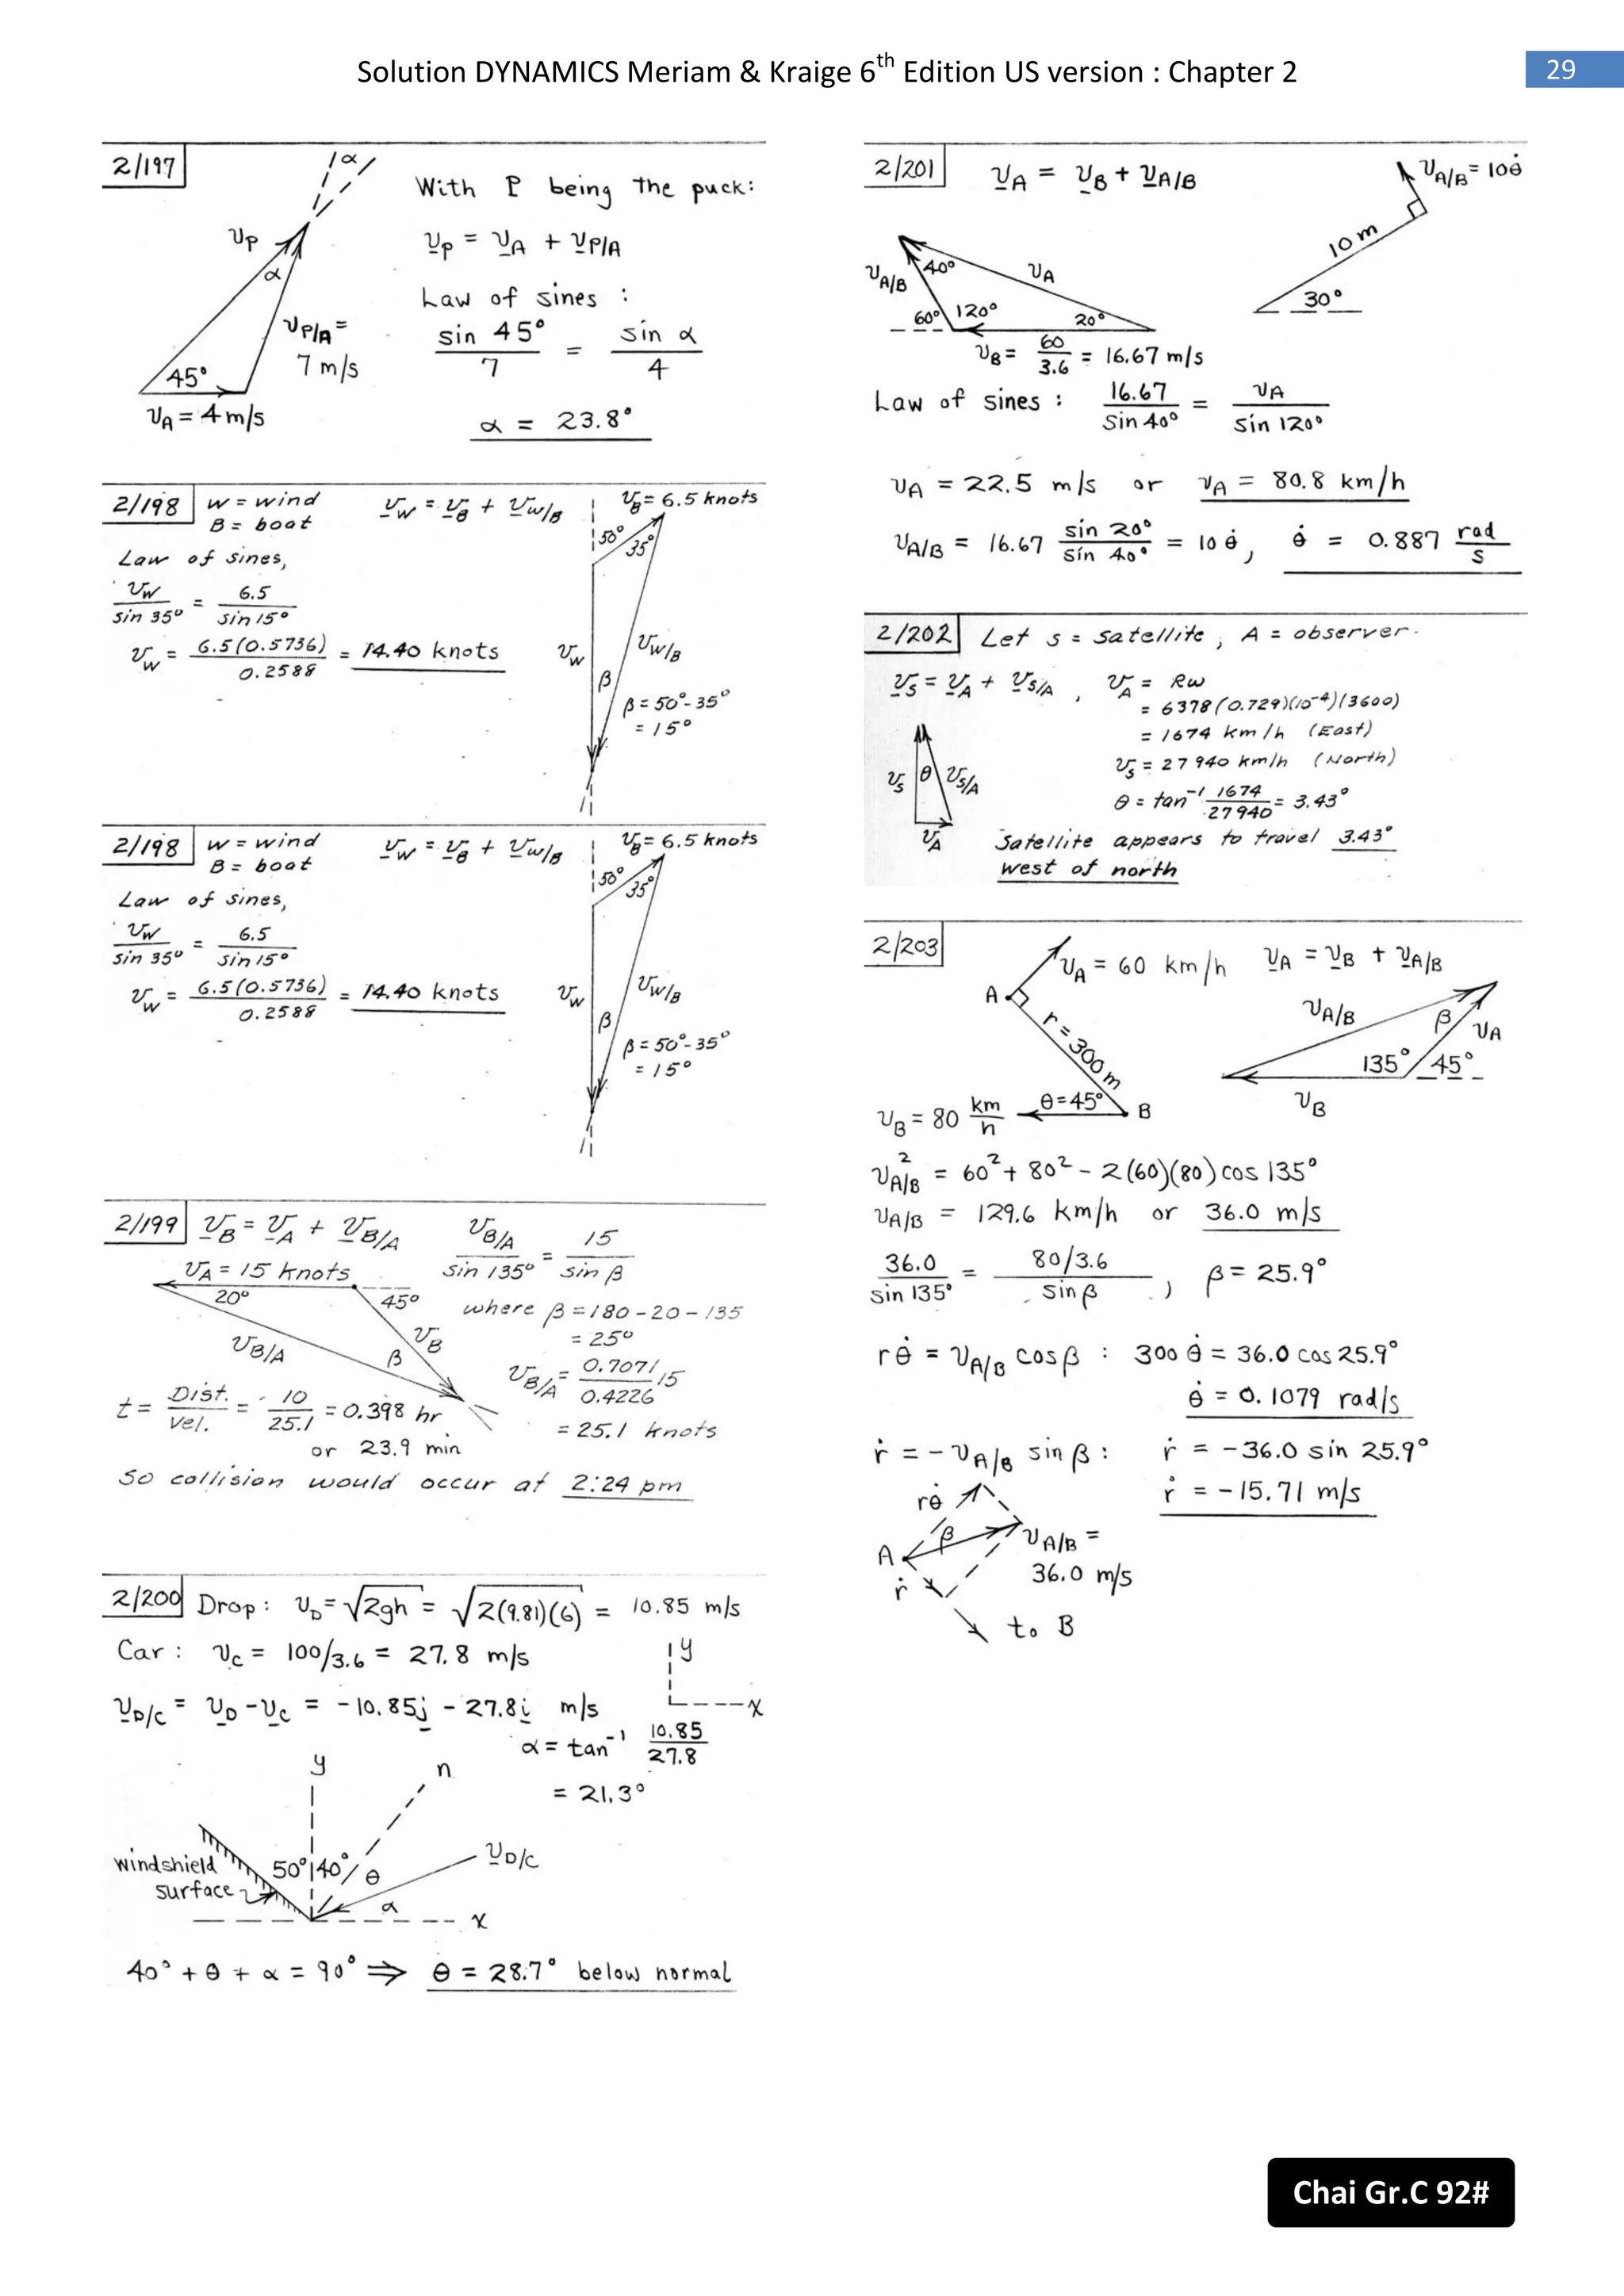 Solution DYNAMICS Meriam & Kraige 6th Edition US version : Chapter 2
29
2/197
α
With P being the puck:
v_P
v_P = v_A + v_P/A
α
Law of sines :
v_P/A =
7 m/s
sin 45° / 7 = sin α / 4
45°
v_A = 4 m/s
α = 23.8°
2/198
w = wind
B = boat
v_w = v_B + v_w/B
v_B = 6.5 knots
50°
35°
Law of sines,
v_w / sin 35° = 6.5 / sin 15°
v_w = 6.5(0.5736) / 0.2588 = 14.40 knots
v_w
v_w/B
β
β = 50° - 35°
= 15°
2/198
w = wind
B = boat
v_w = v_B + v_w/B
v_B = 6.5 knots
50°
35°
Law of sines,
v_w / sin 35° = 6.5 / sin 15°
v_w = 6.5(0.5736) / 0.2588 = 14.40 knots
v_w
v_w/B
β
β = 50° - 35°
= 15°
2/199
v_B = v_A + v_B/A
v_B/A / sin 135° = 15 / sin β
v_A = 15 knots
20°
45°
where β = 180 - 20 - 135
= 25°
v_B/A
v_B
β
v_B/A = 0.7071 / 0.4226 15
= 25.1 knots
t = Dist. / Vel. = 10 / 25.1 = 0.398 hr
or 23.9 min
So collision would occur at 2:24 pm
2/200
Drop : v_D = √2gh = √2(9.81)(6) = 10.85 m/s
Car : v_C = 100/3.6 = 27.8 m/s
y
x
v_D/C = v_D - v_C = -10.85j - 27.8i m/s
α = tan⁻¹ 10.85 / 27.8
= 21.3°
y
n
windshield
surface
50°
40°
θ
v_D/C
α
x
40° + θ + α = 90° ⇒ θ = 28.7° below normal
2/201
v_A = v_B + v_A/B
v_A/B = 10θ̇
10 m
30°
v_A/B
40°
v_A
60°
120°
20°
v_B = 60 / 3.6 = 16.67 m/s
Law of sines : 16.67 / sin 40° = v_A / sin 120°
v_A = 22.5 m/s or v_A = 80.8 km/h
v_A/B = 16.67 sin 20° / sin 40° = 10 θ̇, θ̇ = 0.887 rad / s
2/202
Let s = satellite, A = observer.
v_S = v_A + v_S/A , v_A = Rω
= 6378(0.729)(10⁻⁴)(3600)
= 1674 km/h (East)
v_S = 27 940 km/h (North)
v_S
θ
v_S/A
v_A
θ = tan⁻¹ 1674 / 27940 = 3.43°
Satellite appears to travel 3.43°
west of north
2/203
v_A = 60 km/h
v_A = v_B + v_A/B
A
r = 300 m
v_A/B
β
v_A
135°
45°
v_B
v_B = 80 km / h
θ = 45°
B
v_A/B² = 60² + 80² - 2(60)(80) cos 135°
v_A/B = 129.6 km/h or 36.0 m/s
36.0 / sin 135° = 80/3.6 / sin β , β = 25.9°
rθ̇ = v_A/B cos β : 300 θ̇ = 36.0 cos 25.9°
θ̇ = 0.1079 rad/s
ṙ = - v_A/B sin β : ṙ = -36.0 sin 25.9°
ṙ = -15.71 m/s
rθ̇
β
A
v_A/B =
36.0 m/s
ṙ
to B
Chai Gr.C 92#